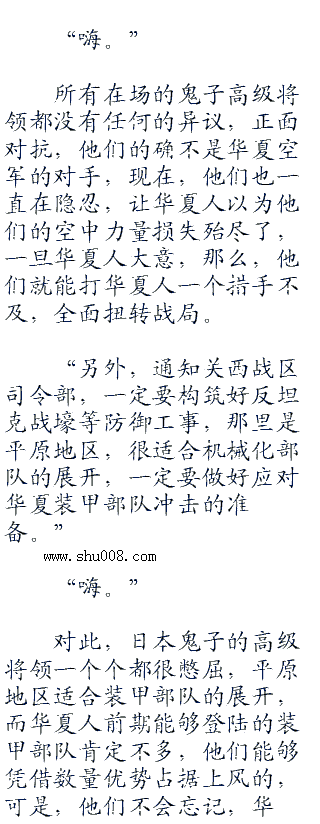 “嗨。”
所有在场的鬼子高级将
领都没有任何的异议，正面
对抗，他们的确不是华夏空
军的对手，现在，他们也一
直在隐忍，让华夏人以为他
们的空中力量损失殆尽了，
一旦华夏人大意，那么，他
们就能打华夏人一个措手不
及，全面扭转战局。
“另外，通知关西战区
司令部，一定要构筑好反坦
克战壕等防御工事，那里是
平原地区，很适合机械化部
队的展开，一定要做好应对
华夏装甲部队冲击的准
备。”
www.shu008.com
“嗨。”
对此，日本鬼子的高级
将领一个个都很憋屈，平原
地区适合装甲部队的展开，
而华夏人前期能够登陆的装
甲部队肯定不多，他们能够
凭借数量优势占据上风的，
可是，他们不会忘记，华